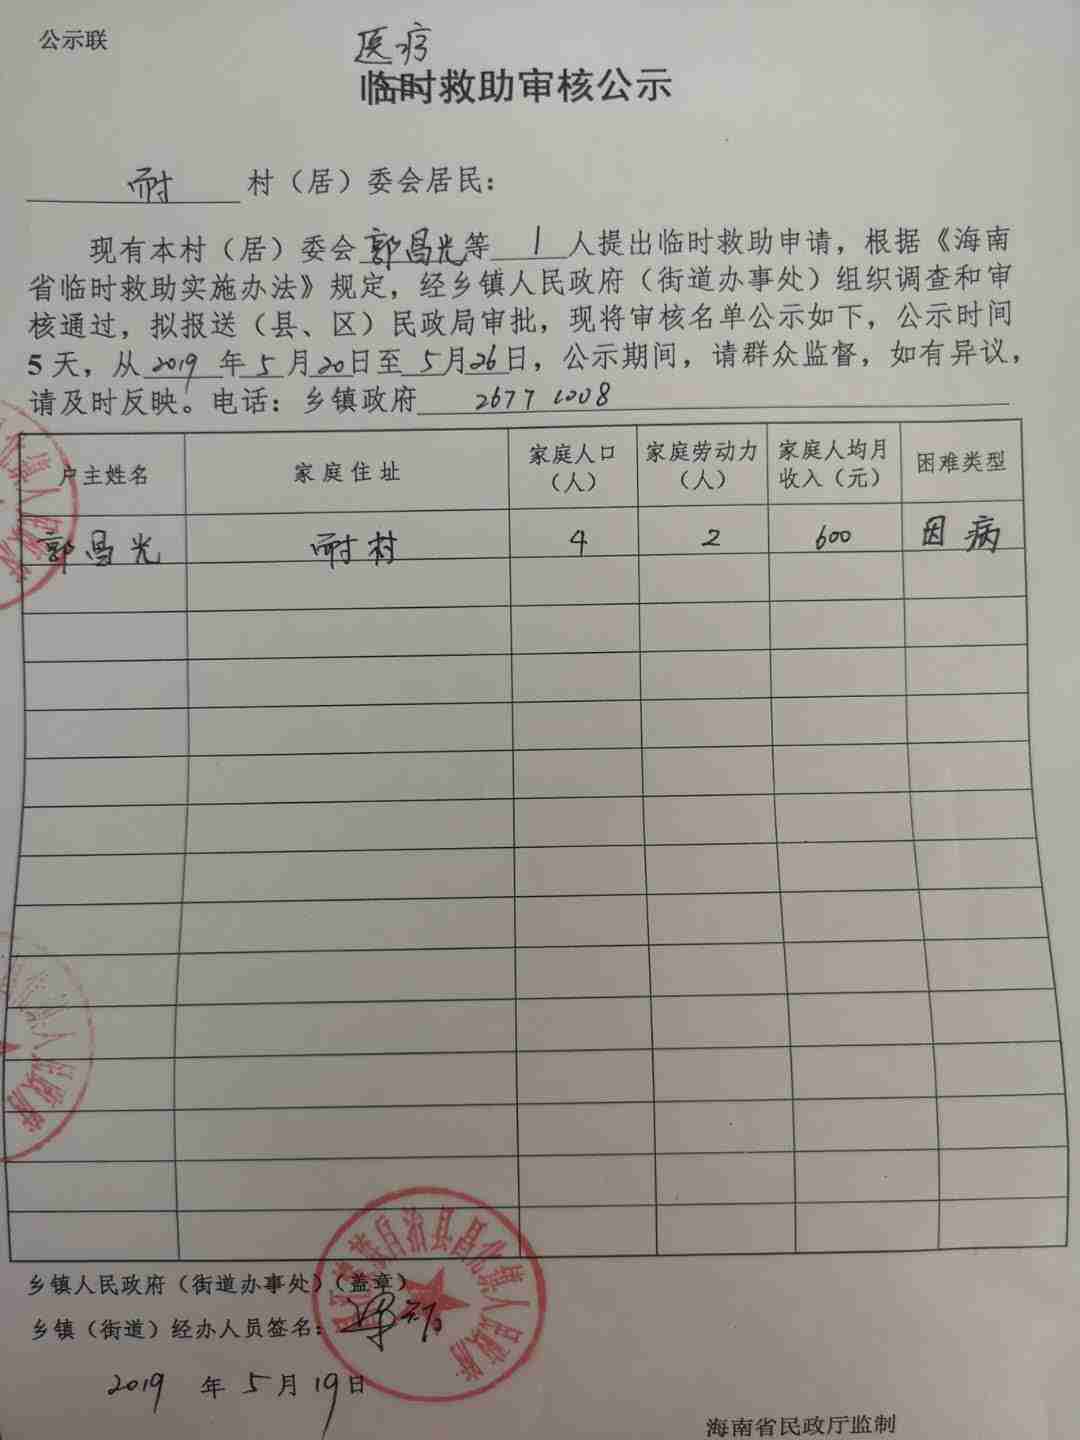 公示联
医疗
临时救助审核公示
耐 村（居）委会居民：
现有本村（居）委会郭昌光等 1 人提出临时救助申请，根据《海南
省临时救助实施办法》规定，经乡镇人民政府（街道办事处）组织调查和审
核通过，拟报送（县、区）民政局审批，现将审核名单公示如下，公示时间
5天，从 2019 年 5 月 20 日至 5 月 26 日，公示期间，请群众监督，如有异议，
请及时反映。电话：乡镇政府 26771008
户主姓名 家庭住址 家庭人口（人） 家庭劳动力（人） 家庭人均月收入（元） 困难类型
郭昌光 耐村 4 2 600 因病
乡镇人民政府（街道办事处）（盖章）
族自治县昌化镇人民政府
乡镇（街道）经办人员签名：
2019 年 5 月 19 日
海南省民政厅监制